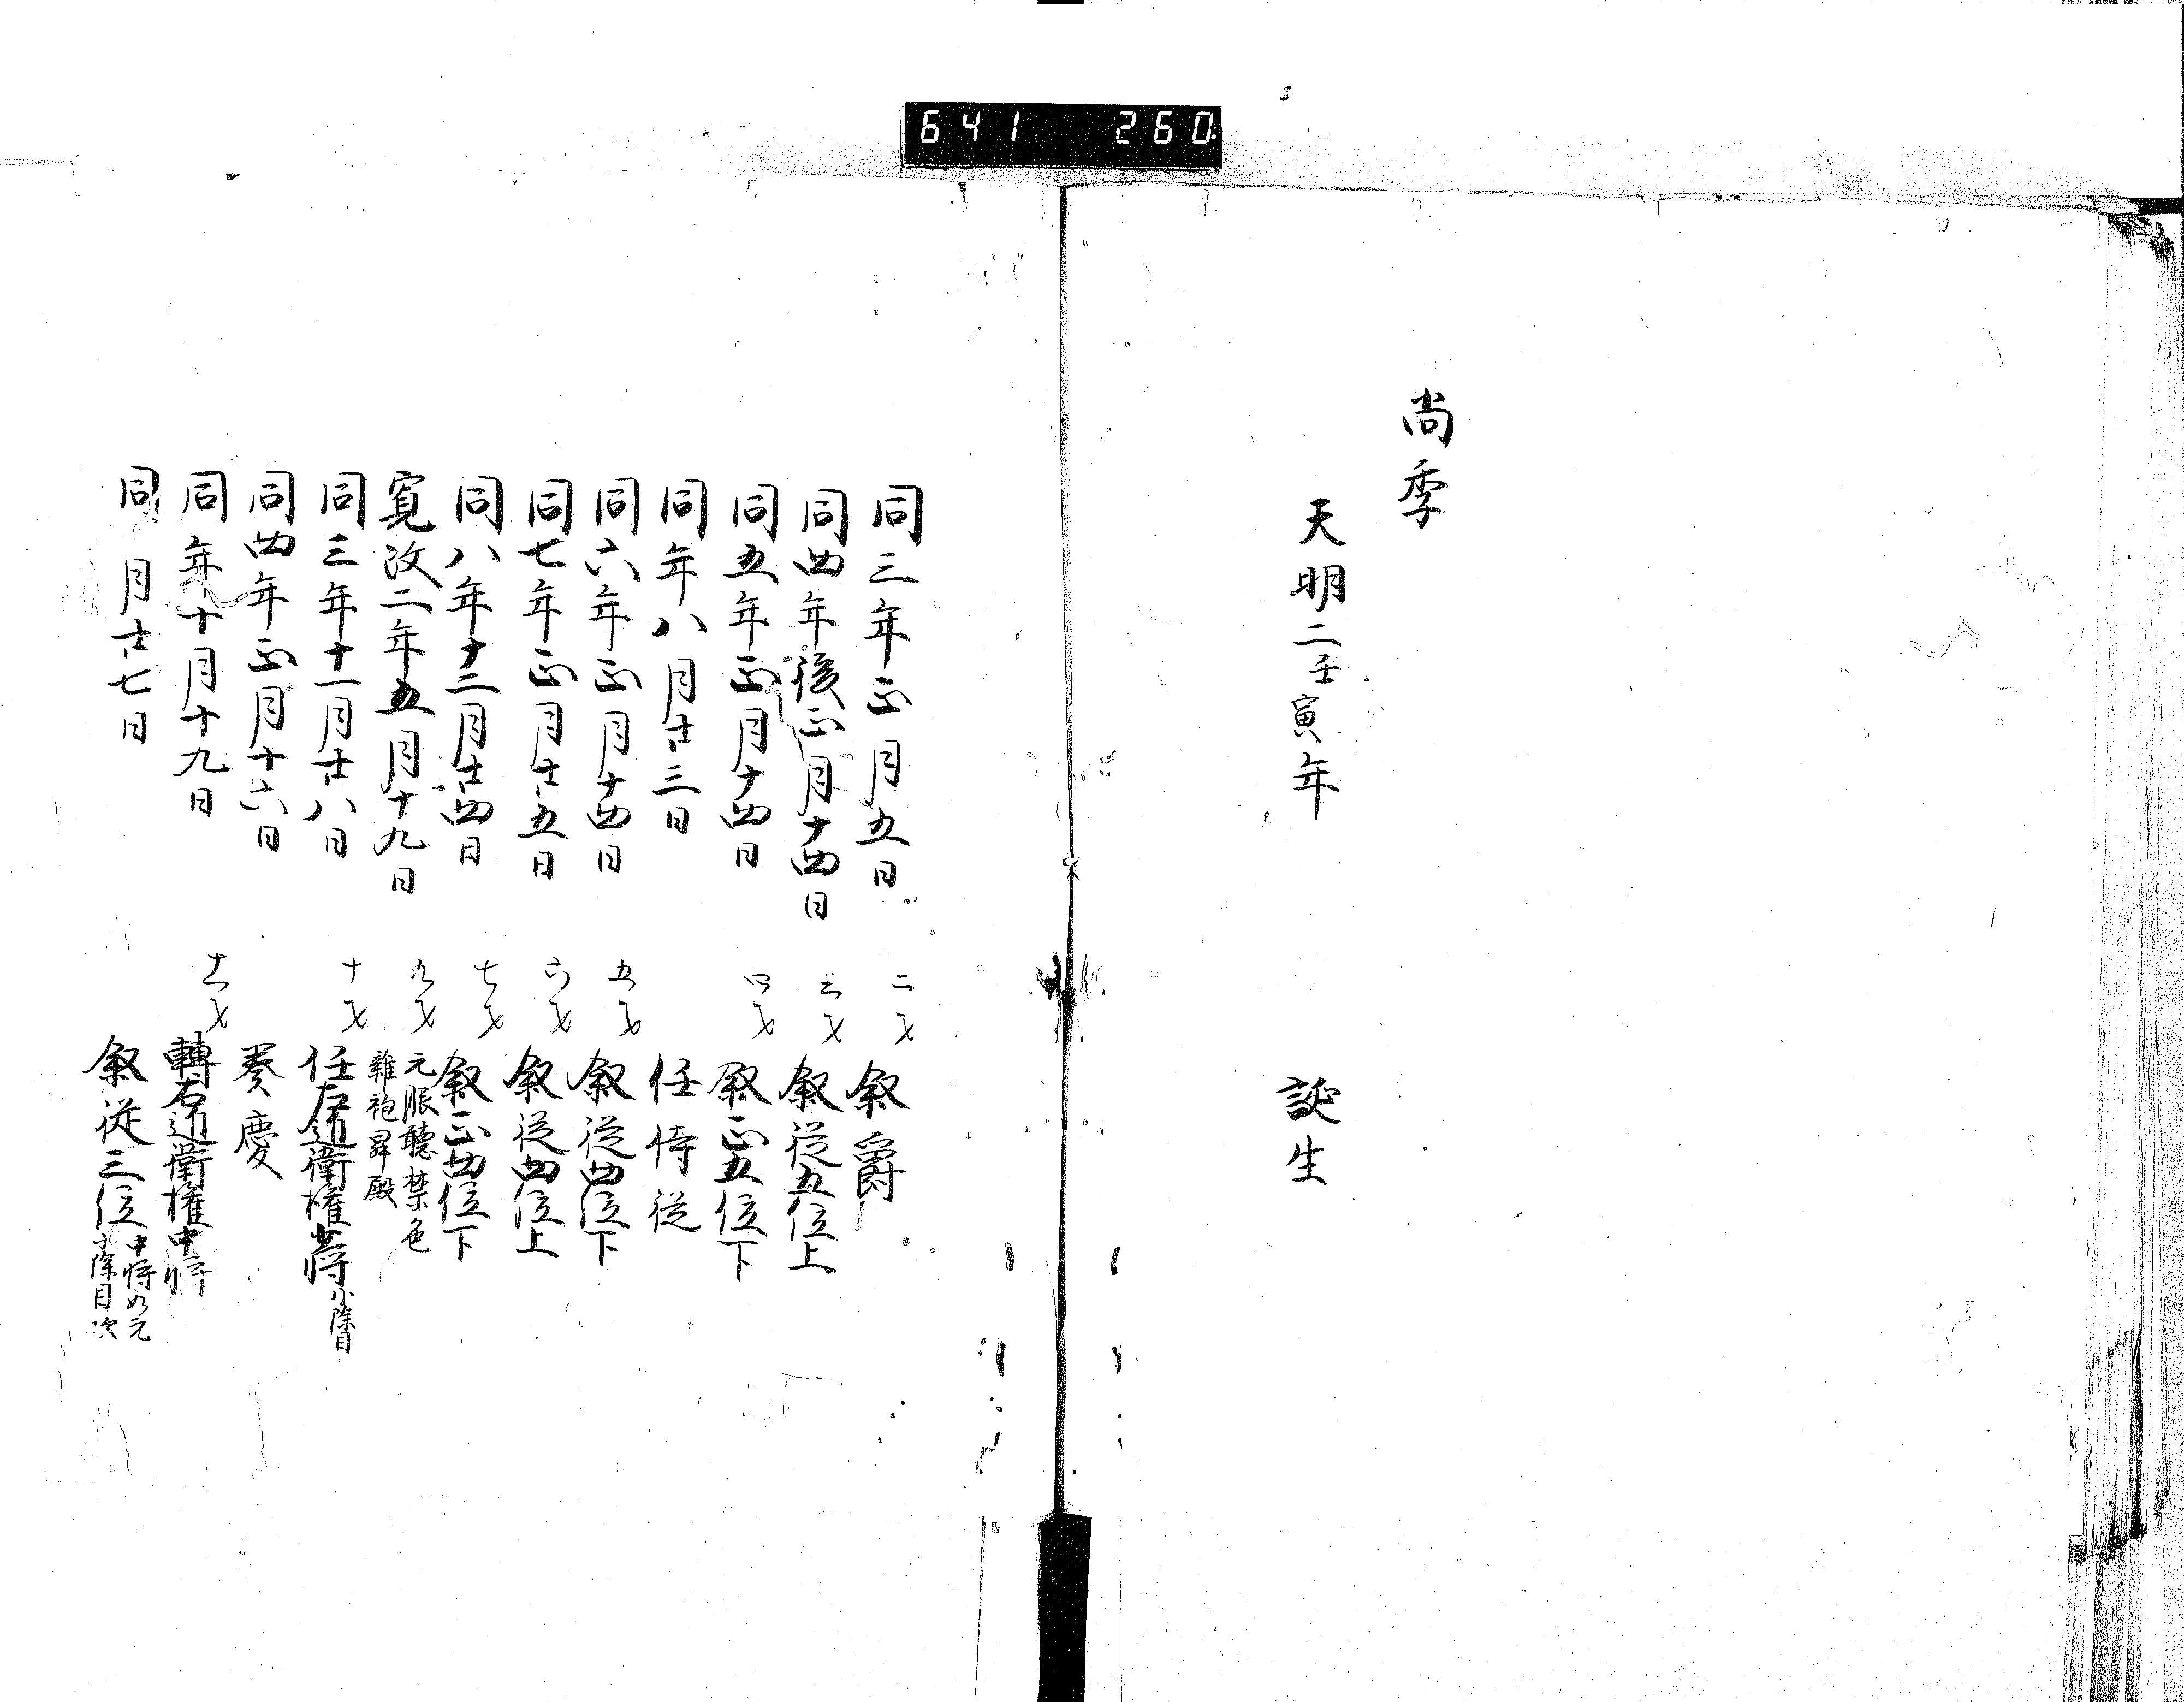 641 260
尚季
天明二壬寅年 誕生
同三年正月五日 二才 叙爵
同四年後正月十四日 三才 叙従五位上
同五年正月十四日 四才 叙正五位下
同年八月廿三日 任侍従
同六年正月十四日 五才 叙従四位下
同七年正月廿五日 六才 叙従四位上
同八年十二月廿四日 七才 叙正四位下
寛政二年五月十九日 九才 元服聴禁色
雑袍昇殿
同三年十一月廿八日 十才 任左近衛権少将 小除目
同四年正月十六日 奏慶
同年十月十九日 十一才 轉右近衛権中将
同月廿七日 叙従三位 中将如元
小除目次